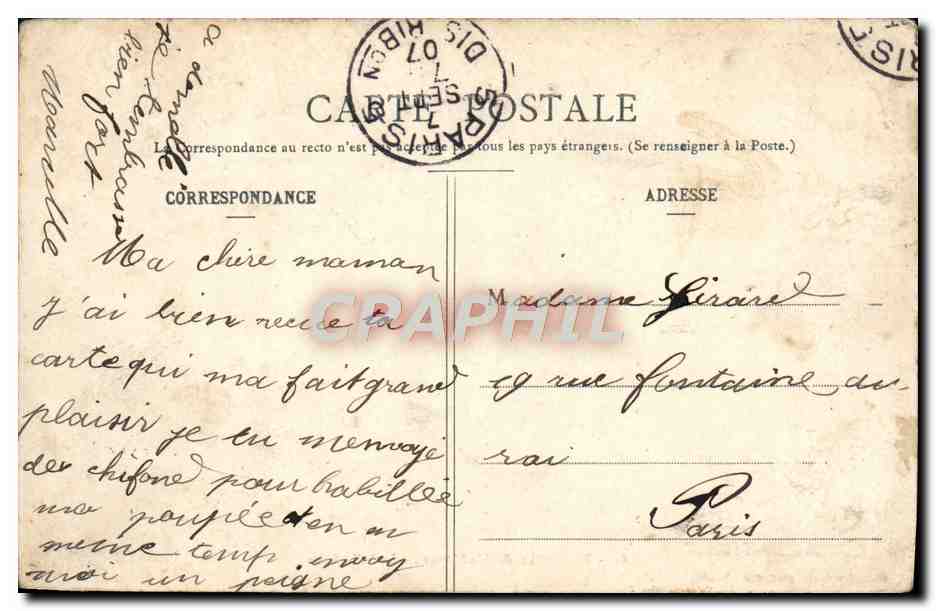 CARTE POSTALE
La correspondance au recto n'est pas acceptée par tous les pays étrangers. (Se renseigner à la Poste.)
CORRESPONDANCE
Ma chère maman
j'ai bien recue ta
carte qui ma fait grand
plaisir je tu menvoye
des chifond pour habillée
ma poupée et en
meme temp envoy
moi un peigne
a demadé
te
bien embrasse
fort
ADRESSE
Madame Girard
19 rue fontaine au
roi
Paris
PARIS
7 SEPT
7
07
DISTRIBON
PARIS
CPAPHIL